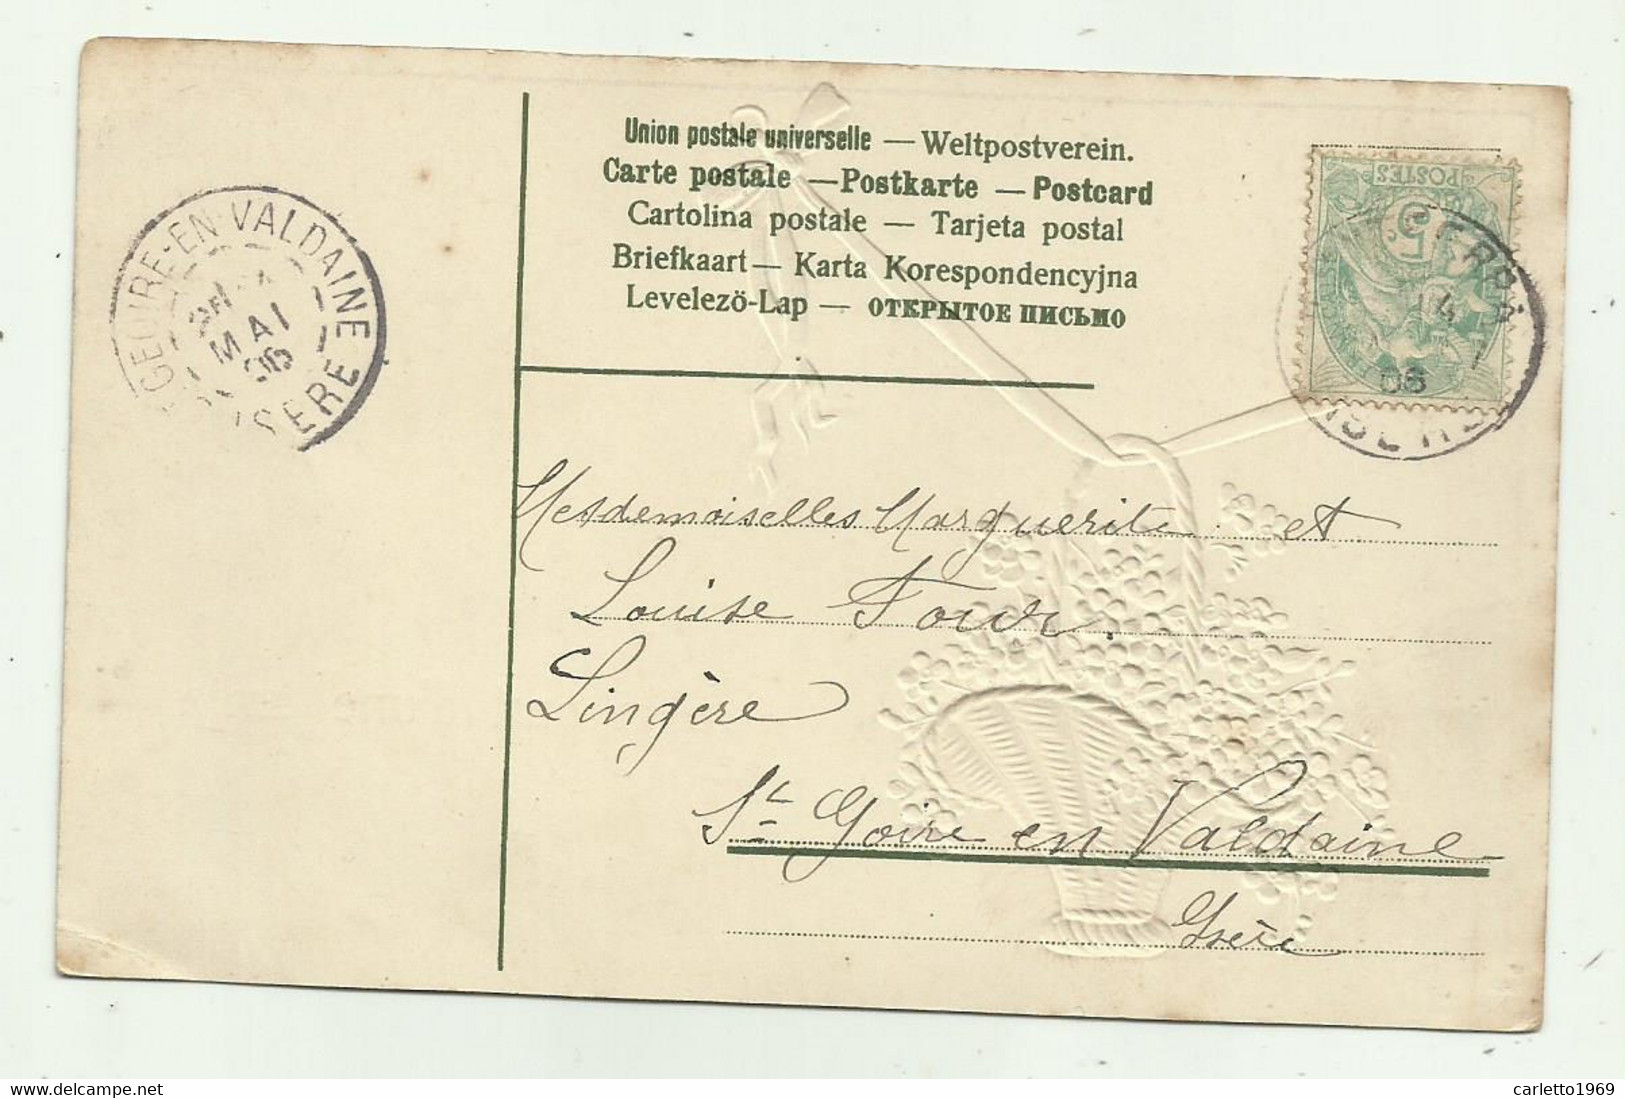 Union postale universelle — Weltpostverein.
Carte postale — Postkarte — Postcard
Cartolina postale — Tarjeta postal
Briefkaart — Karta Korespondencyjna
Levelező-Lap — ОТКРЫТОЕ ПИСЬМО
POSTES
5c
GEOIRE-EN-VALDAINE
MAI
06
ISERE
4
06
ISERE
Mesdemoiselles Marguerite et
Louise Four
Lingère
St Goire en Valdaine
Isère
Delcampe.net
carletto1969